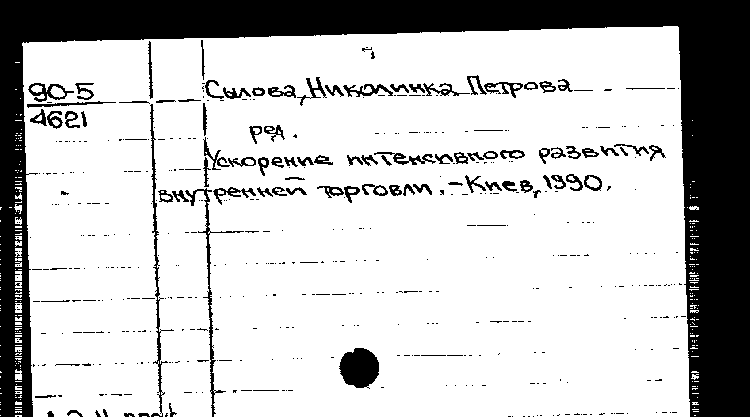 90-5
4621
Сылова, Николинка Петрова
ред.
Ускорение интенсивного развития
внутренней торговли. - Киев, 1990.